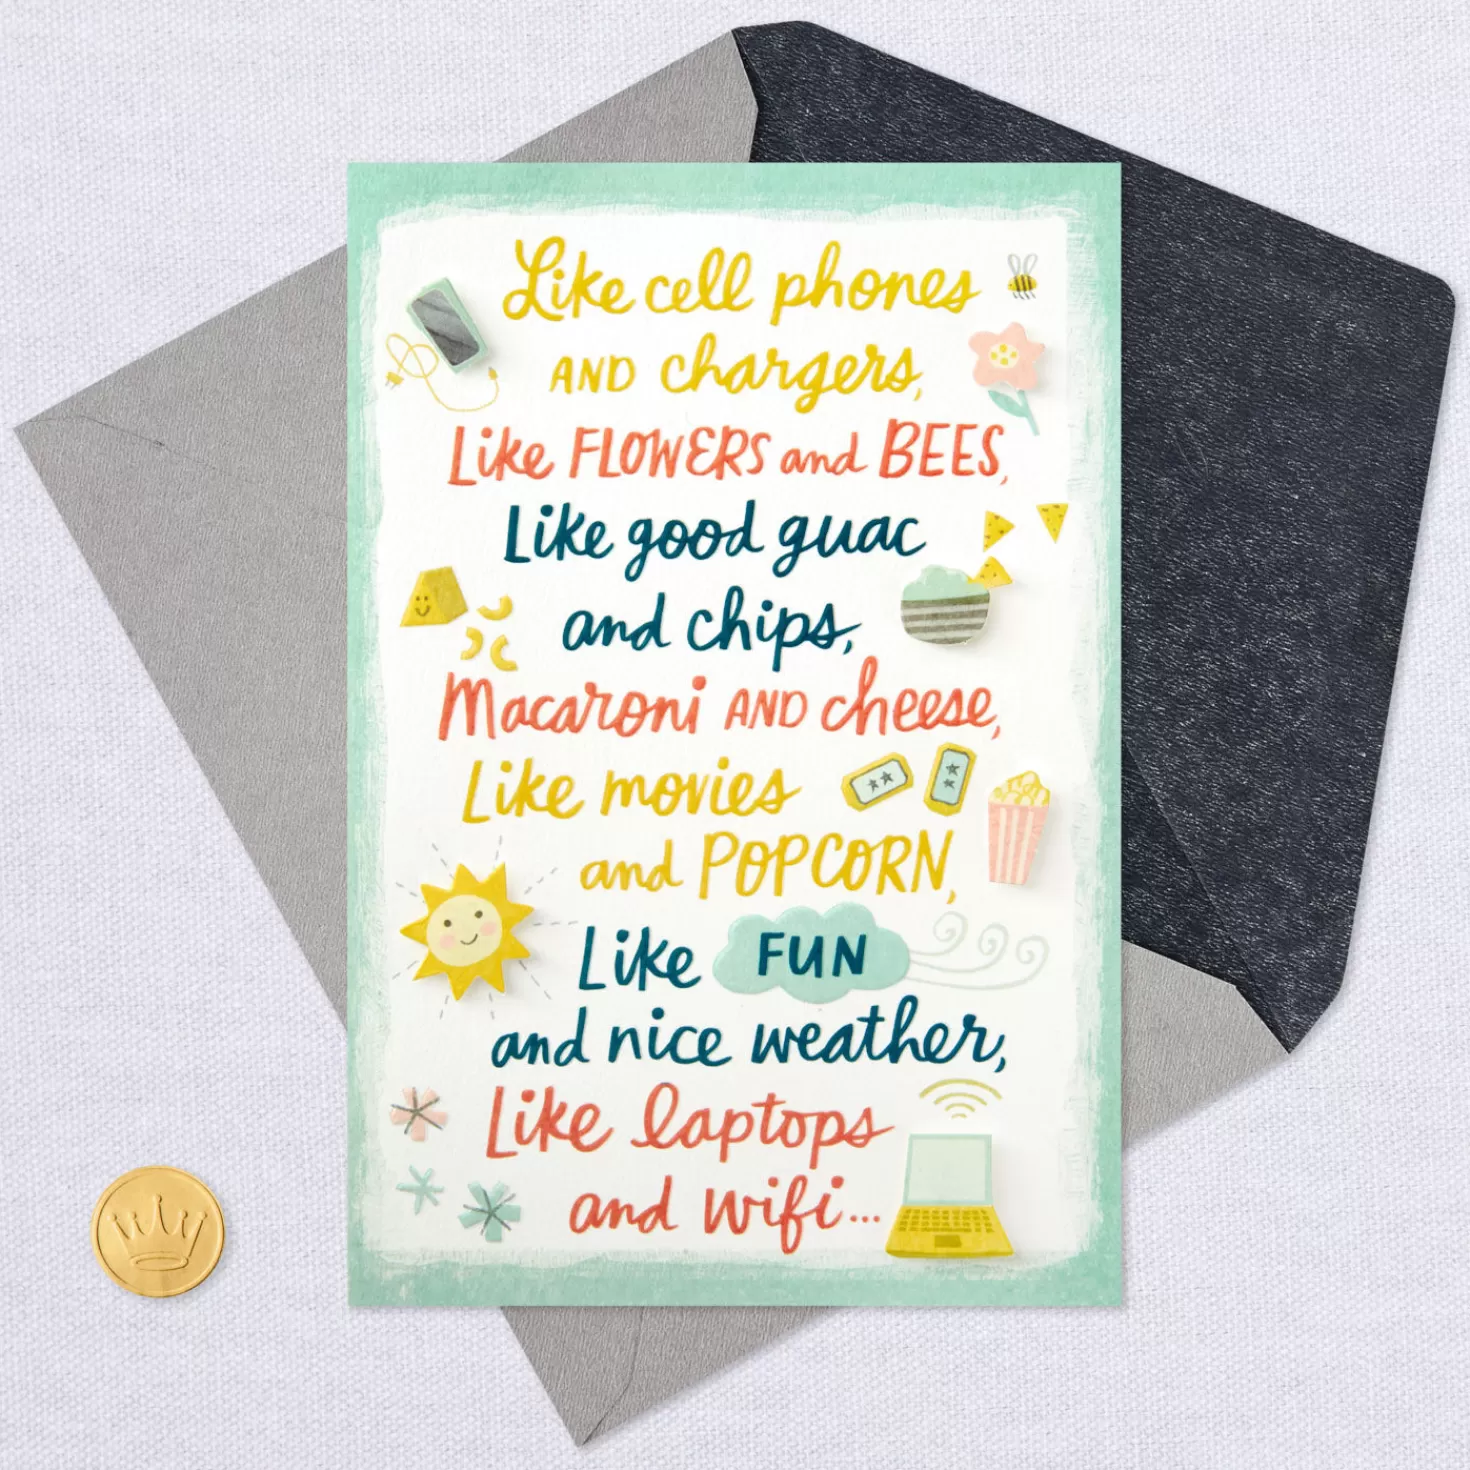 Like cell phones
AND chargers,
Like FLOWERS and BEES,
Like good guac
and chips,
Macaroni AND cheese,
Like movies
and POPCORN,
Like FUN
and nice weather,
Like laptops
and wifi...